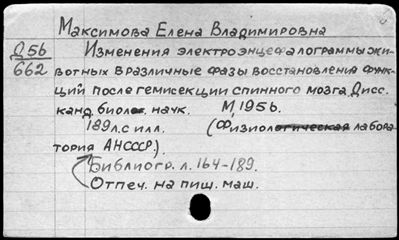 Максимова Елена Владимировна
Д56
662
Изменения электроэнцефалограммы жи-
вотных в различные фазы восстановления функ-
ций после гемисекции спинного мозга. Дисс.
канд. биол. наук. М, 1956.
189 л. с илл. (Физиологическая лабора-
тория АН СССР.)
Библиогр. л. 164-189.
Отпеч. на пиш. маш.